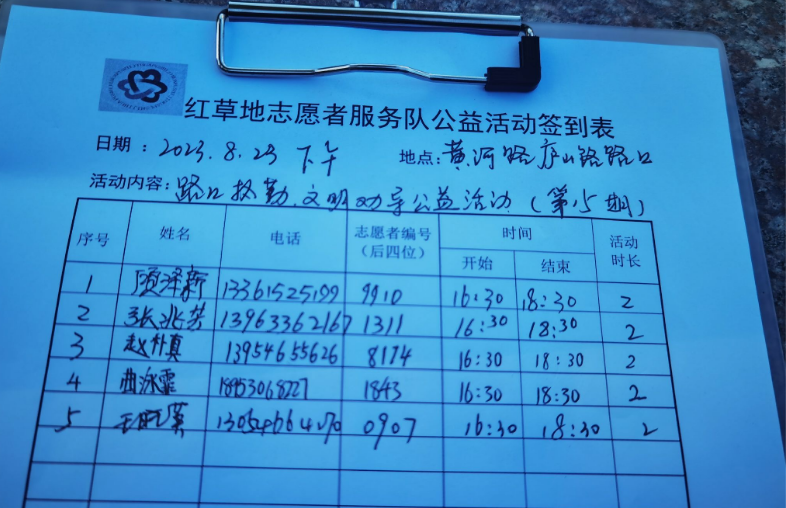 红草地志愿者服务队公益活动签到表
日期：2023.8.23 下午 地点：黄河路庐山路路口
活动内容：路口执勤、文明劝导公益活动（第15期）
序号 姓名 电话 志愿者编号（后四位） 时间 开始 结束 活动时长
1 泽新 13361525199 9910 16:30 18:30 2
2 张兆芳 13963362167 1311 16:30 18:30 2
3 赵朴真 13954655626 8174 16:30 18:30 2
4 曲泳霏 18953068227 1843 16:30 18:30 2
5 王 英 0907 16:30 18:30 2